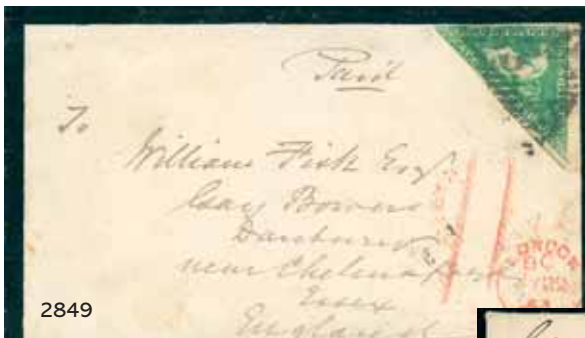 Paid
To
William Fisk Esq
Bowers
Danbury
near Chelmsford
Essex
England
LONDON
2849